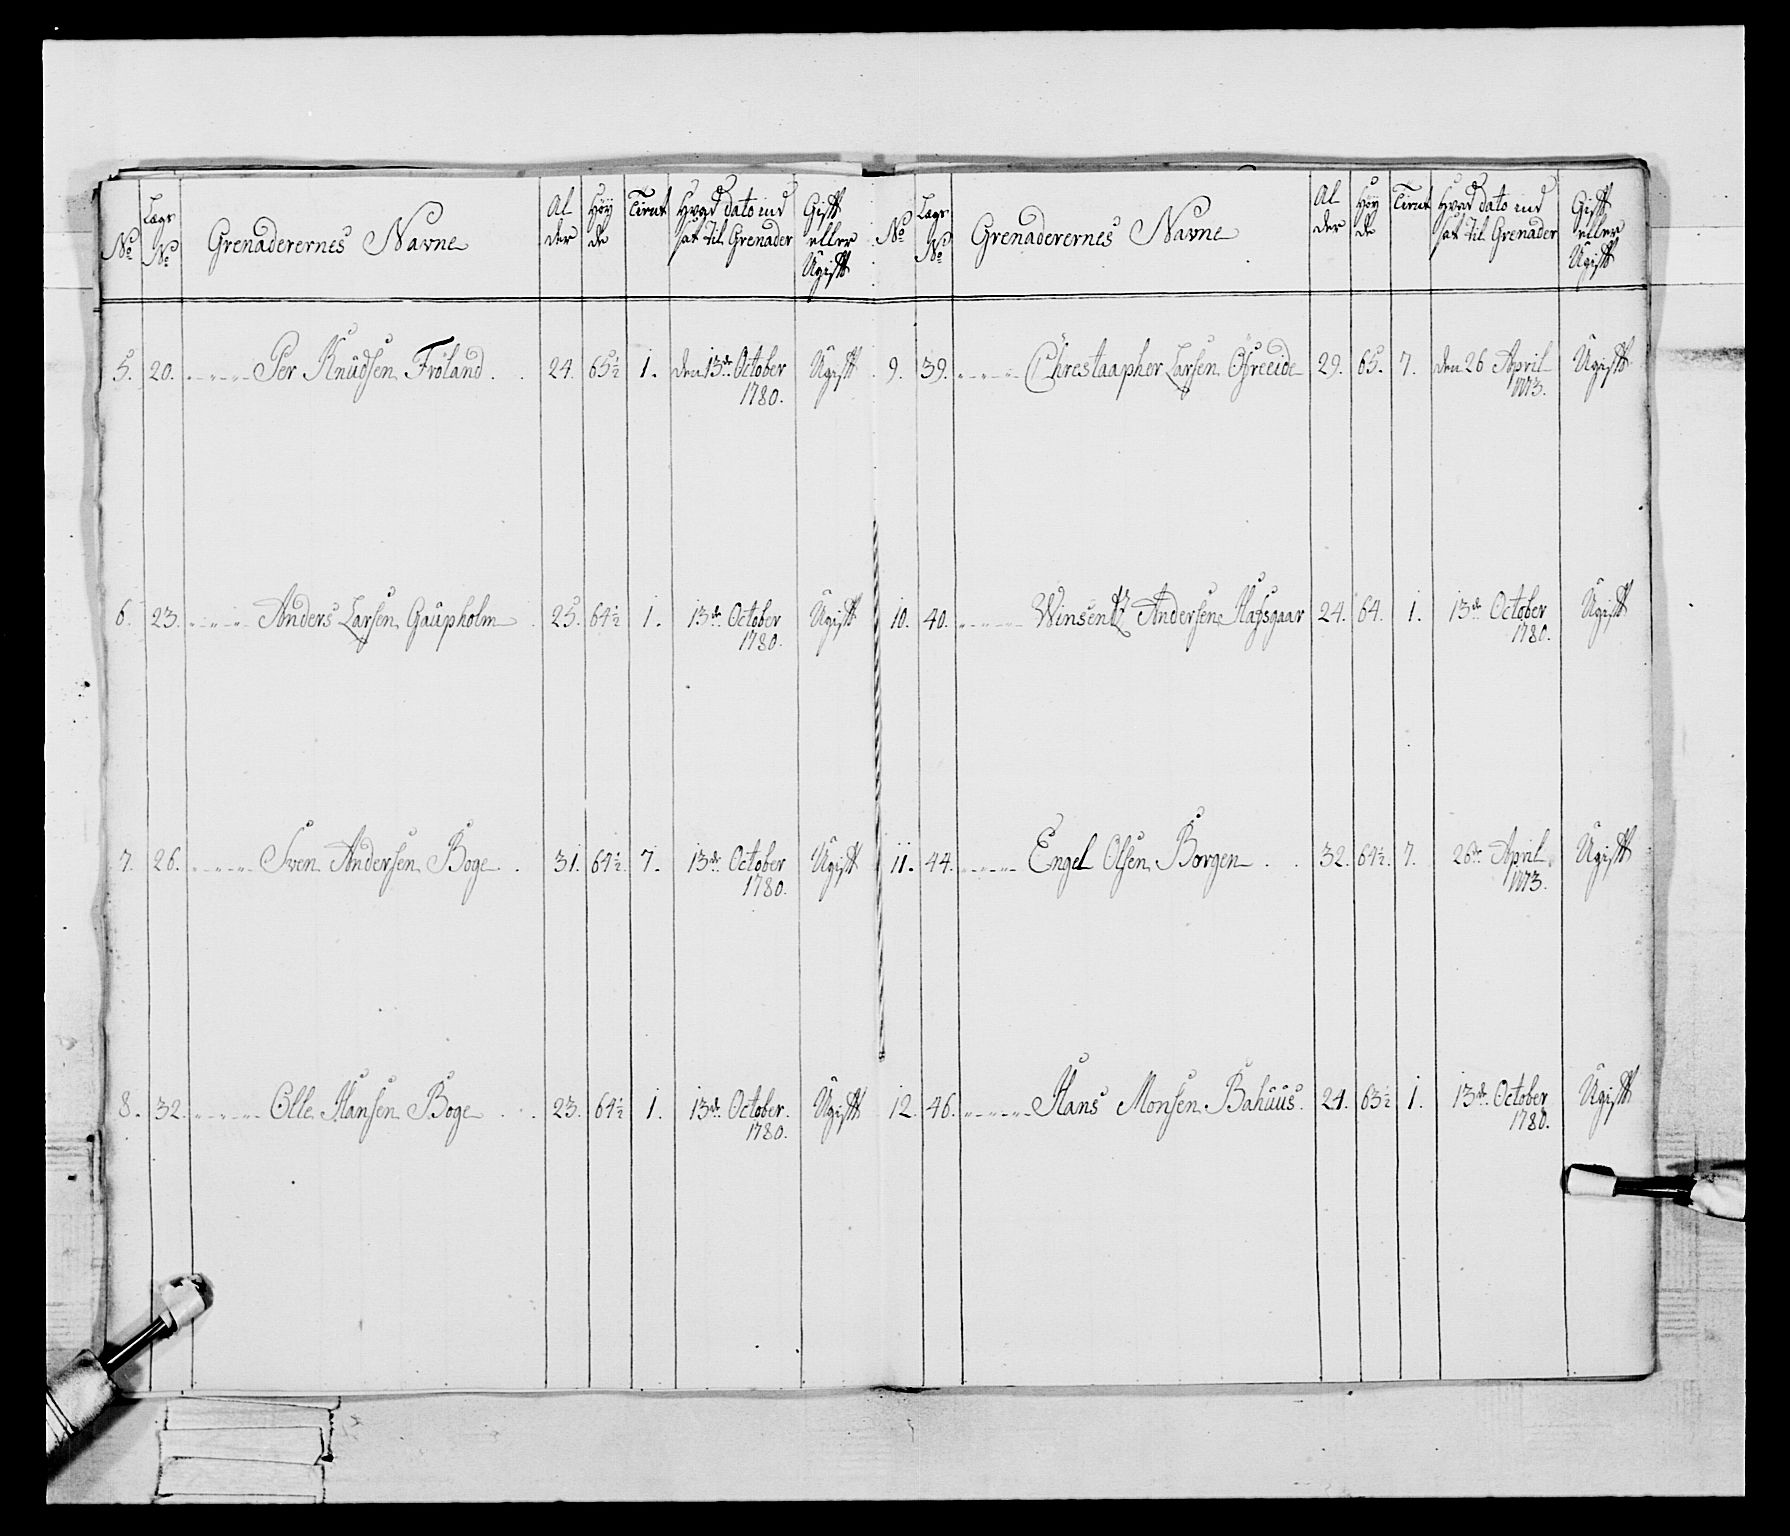 No | Lægs No | Grenaderernes Navne | Al der | Höy de | Tienst | Hvad dato ind sat til Grenader | Gift eller Ugift
5. | 20. | Per Knudsen Fröland | 24. | 65½ | 1. | den 13de October 1780. | Ugift
6. | 23. | Anders Larsen Gaupholm | 25. | 64½ | 1. | 13de October 1780. | Ugift
7. | 26. | Sven Andersen Boge | 31. | 64½ | 7. | 13de October 1780. | Ugift
8. | 32. | Olle Hansen Boge | 23. | 64½ | 1. | 13de October 1780. | Ugift
No | Lægs No | Grenaderernes Navne | Al der | Höy de | Tienst | Hvad dato ind sat til Grenader | Gift eller Ugift
9. | 39. | Chrestaapher Larsen | 29. | 65. | 7. | den 26 April 1773. | Ugift
10. | 40. | Winsentz Andersen Hafsgaar | 24. | 64. | 1. | 13de October 1780. | Ugift
11. | 44. | Engel Olsen Borgen | 32. | 64½. | 7. | 26de April 1773. | Ugift
12. | 46. | Hans Monsen Bahuus. | 24. | 63½ | 1. | 13de October 1780. | Ugift